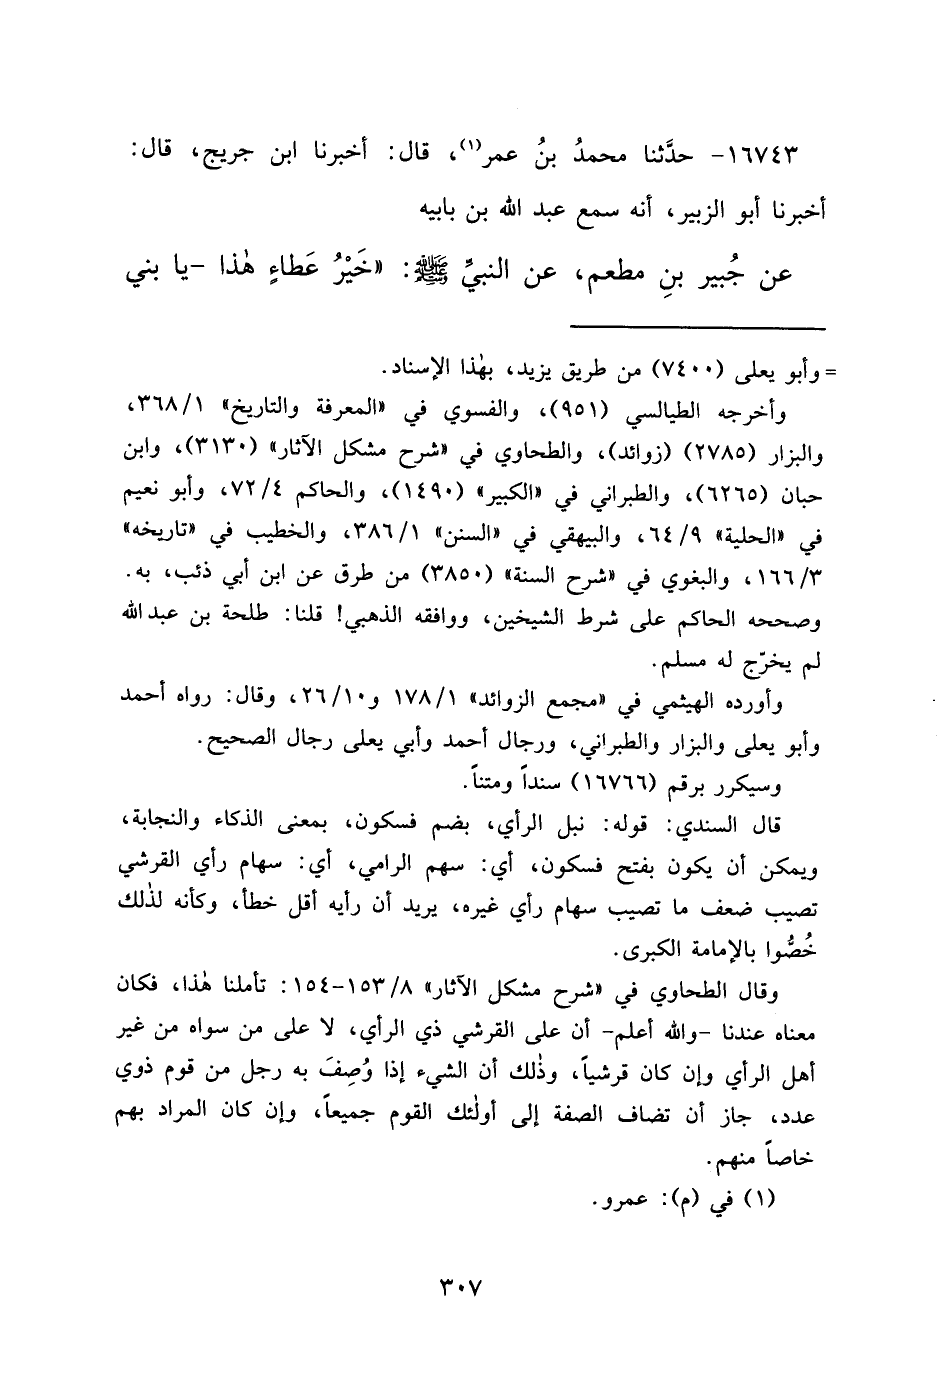 ١٦٧٤٣- حدَّثنا محمدُ بنُ عمر(١)، قال: أخبرنا ابن جريج، قال:
أخبرنا أبو الزبير، أنه سمع عبد الله بن بابيه
عن جُبير بنِ مطعم، عن النبيِّ ﷺ: «خَيْرُ عَطاءٍ هٰذا -يا بني
= وأبو يعلى (٧٤٠٠) من طريق يزيد، بهٰذا الإسناد.
وأخرجه الطيالسي (٩٥١)، والفسوي في «المعرفة والتاريخ» ٣٦٨/١،
والبزار (٢٧٨٥) (زوائد)، والطحاوي في «شرح مشكل الآثار» (٣١٣٠)، وابن
حبان (٦٢٦٥)، والطبراني في «الكبير» (١٤٩٠)، والحاكم ٧٢/٤، وأبو نعيم
في «الحلية» ٦٤/٩، والبيهقي في «السنن» ٣٨٦/١، والخطيب في «تاريخه»
١٦٦/٣، والبغوي في «شرح السنة» (٣٨٥٠) من طرق عن ابن أبي ذئب، به.
وصححه الحاكم على شرط الشيخين، ووافقه الذهبي! قلنا: طلحة بن عبد الله
لم يخرّج له مسلم.
وأورده الهيثمي في «مجمع الزوائد» ١٧٨/١ و٢٦/١٠، وقال: رواه أحمد
وأبو يعلى والبزار والطبراني، ورجال أحمد وأبي يعلى رجال الصحيح.
وسيكرر برقم (١٦٧٦٦) سنداً ومتناً.
قال السندي: قوله: نبل الرأي، بضم فسكون، بمعنى الذكاء والنجابة،
ويمكن أن يكون بفتح فسكون، أي: سهم الرامي، أي: سهام رأي القرشي
تصيب ضعف ما تصيب سهام رأي غيره، يريد أن رأيه أقل خطأ، وكأنه لذٰلك
خُصُّوا بالإمامة الكبرى.
وقال الطحاوي في «شرح مشكل الآثار» ١٥٣/٨-١٥٤: تأملنا هٰذا، فكان
معناه عندنا -والله أعلم- أن على القرشي ذي الرأي، لا على من سواه من غير
أهل الرأي وإن كان قرشياً، وذٰلك أن الشيء إذا وُصِفَ به رجل من قوم ذوي
عدد، جاز أن تضاف الصفة إلى أولٰئك القوم جميعاً، وإن كان المراد بهم
خاصاً منهم.
(١) في (م): عمرو.
٣٠٧